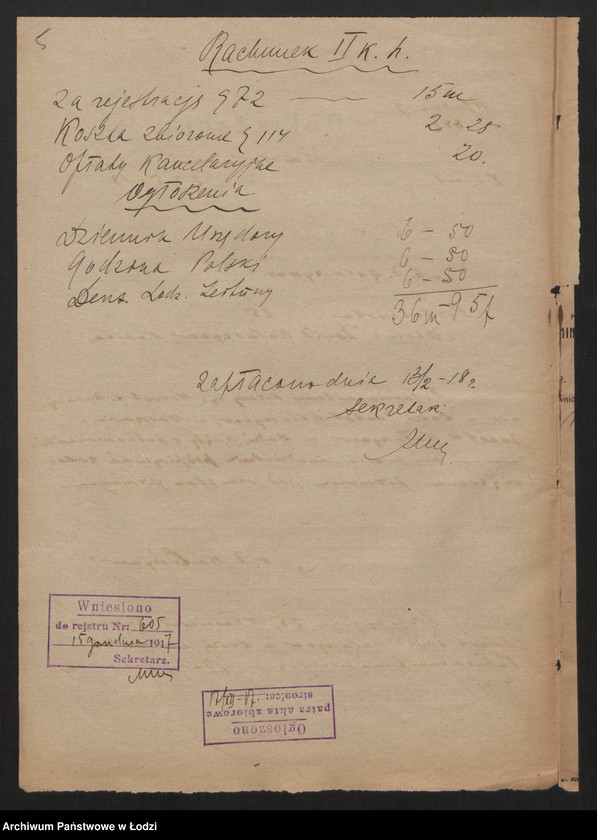 5
Rachunek II k. h.
za rejestrację § 72 — 15 m
Koszta zbiorowe § 114 2 25
Opłaty Kancelaryjne 20.
Ogłoszenia
Dziennik Urzędowy 6 – 50
Godzina Polski 6 – 50
Deut. Lodz. Zeitung 6 – 50
36 m – 95 f
zapłacono dnia 13/2 – 18 r.
Sekretarz
Wniesiono
do rejstru Nr: 605
15 grudnia 1917
Sekretarz.
Ogłoszono
patrz akta zbiorowe
stronica: 17/XII – 17.
Archiwum Państwowe w Łodzi